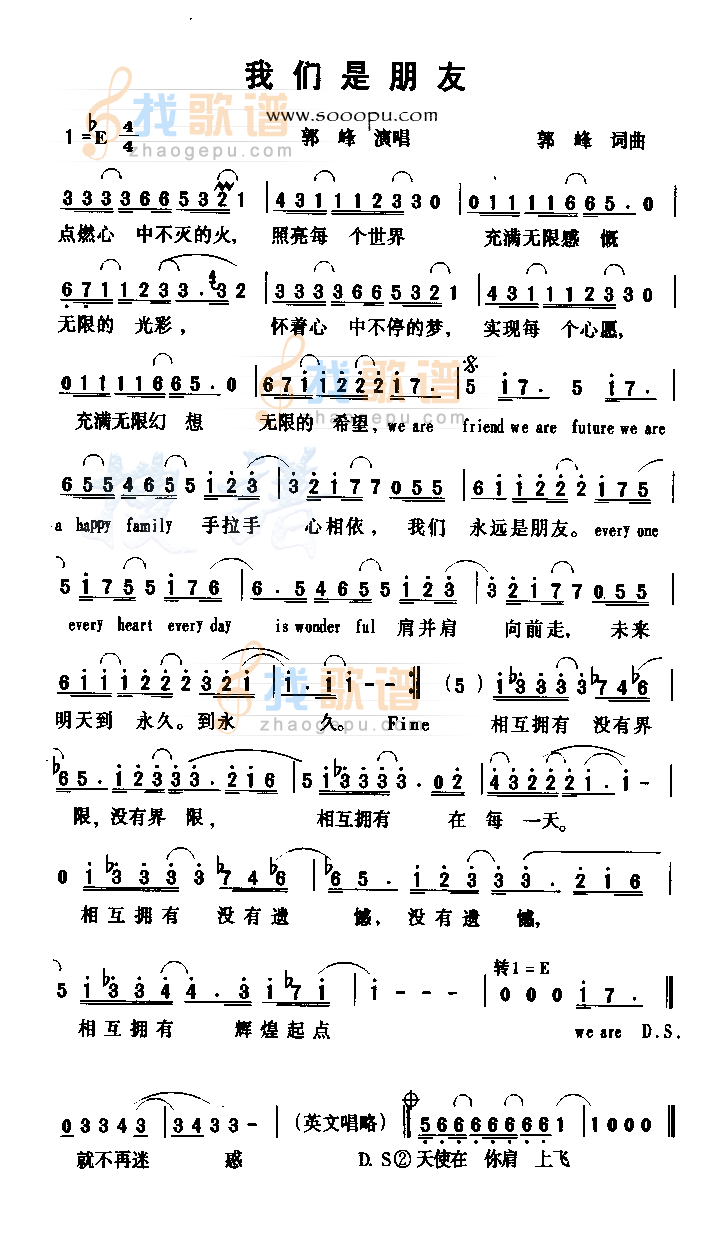 我们是朋友
www.sooopu.com
找歌谱
zhaogepu.com
1=♭E 4/4 郭峰 演唱 郭峰 词曲
3 3 3 3 6 6 5 3 2 1 | 4 3 1 1 1 2 3 3 0 | 0 1 1 1 1 6 6 5. 0 |
点燃心 中不灭的火, 照亮每 个世界 充满无限感 慨
6 7 1 1 2 3 3. 4 3 2 | 3 3 3 3 6 6 5 3 2 1 | 4 3 1 1 1 2 3 3 0 |
无限的 光彩, 怀着心 中不停的梦, 实现每 个心愿,
0 1 1 1 1 6 6 5. 0 | 6 7 1 1 2 2 2 1 7 | 5 1 7. 5 1 7. |
充满无限幻 想 无限的 希望, we are friend we are future we are
找歌谱
zhaogepu.com
6 5 5 4 6 5 5 1 2 3 | 3 2 1 7 7 0 5 5 | 6 1 1 2 2 2 1 7 5 |
a happy family 手拉手 心相依, 我们 永远是朋友。every one
5 1 7 5 5 1 7 6 | 6. 5 4 6 5 5 1 2 3 | 3 2 1 7 7 0 5 5 |
every heart every day is wonder ful 肩并肩 向前走, 未来
6 1 1 1 2 2 2 3 2 1 | 1. 1 1 - - :‖ (5) | 1 ♭3 3 3 3 ♭7 4 ♭6 |
明天到 永久。到永 久。 Fine 相互拥有 没有界
找歌谱
zhaogepu.com
♭6 5. 1 2 3 3 3. 2 1 6 | 5 1 ♭3 3 3 3. 0 2 | 4 3 2 2 2 1. 1 - |
限, 没有界 限, 相互拥有 在 每 一天。
0 1 ♭3 3 3 3 ♭7 4 6 ♭6 | ♭6 5. 1 2 3 3 3. 2 1 6 |
相互拥有 没有遗 憾, 没有遗 憾,
转1=E
5 1 ♭3 3 4 4. 3 1 ♭7 1 | 1 - - - | 0 0 0 1 7. ‖
相互拥有 辉煌起点 we are D.S.
0 3 3 4 3 | 3 4 3 3 - | (英文唱略) ‖ 5 6 6 6 6 6 6 6 1 | 1 0 0 0 ‖
就不再迷 惑 D.S② 天使在 你肩 上飞